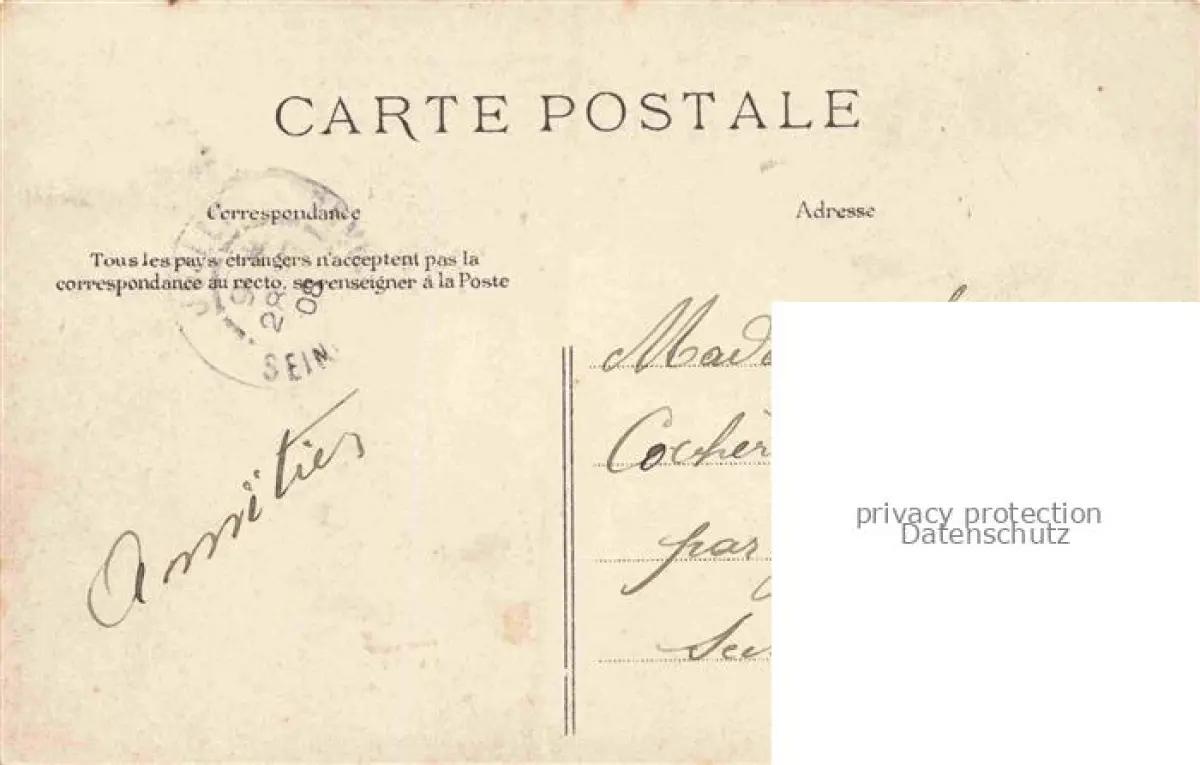 CARTE POSTALE
Correspondance
Tous les pays étrangers n'acceptent pas la
correspondance au recto, se renseigner à la Poste
28
08
SEIN
Amitiés
Adresse
par
privacy protection
Datenschutz